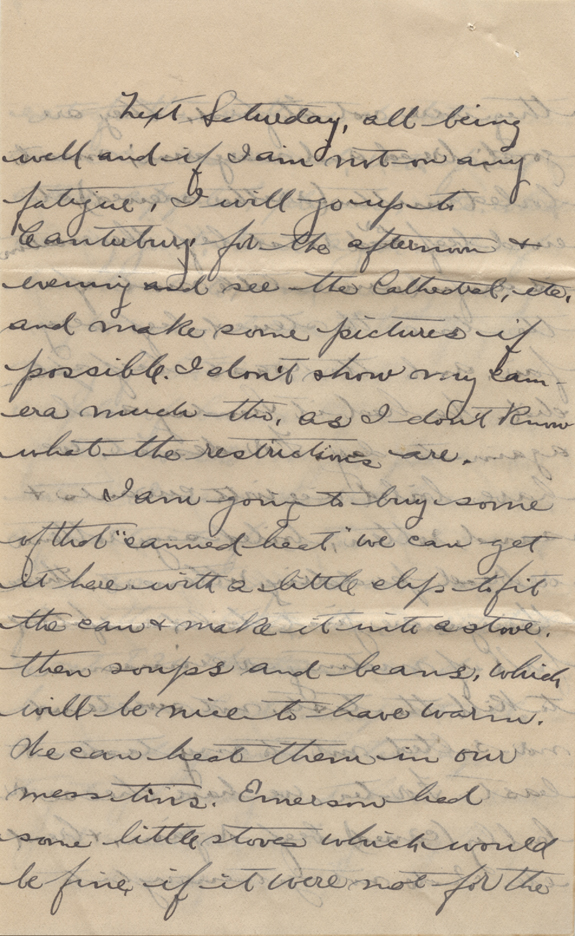 Next Saturday, all being
well and if I am not on any
fatigue, I will go up to
Canterbury for the afternoon &
evening and see the Cathedral, etc.
and make some pictures if
possible. I don't show my cam-
era much tho, as I don't know
what the restrictions are.
I am going to buy some
of that "canned heat" we can get
it here with a little clip to fit
the can & make it into a stove.
then soups and beans, which
will be nice to have warm.
We can heat them in our
mess tins. Emerson had
some little stoves which would
be fine, if it were not for the